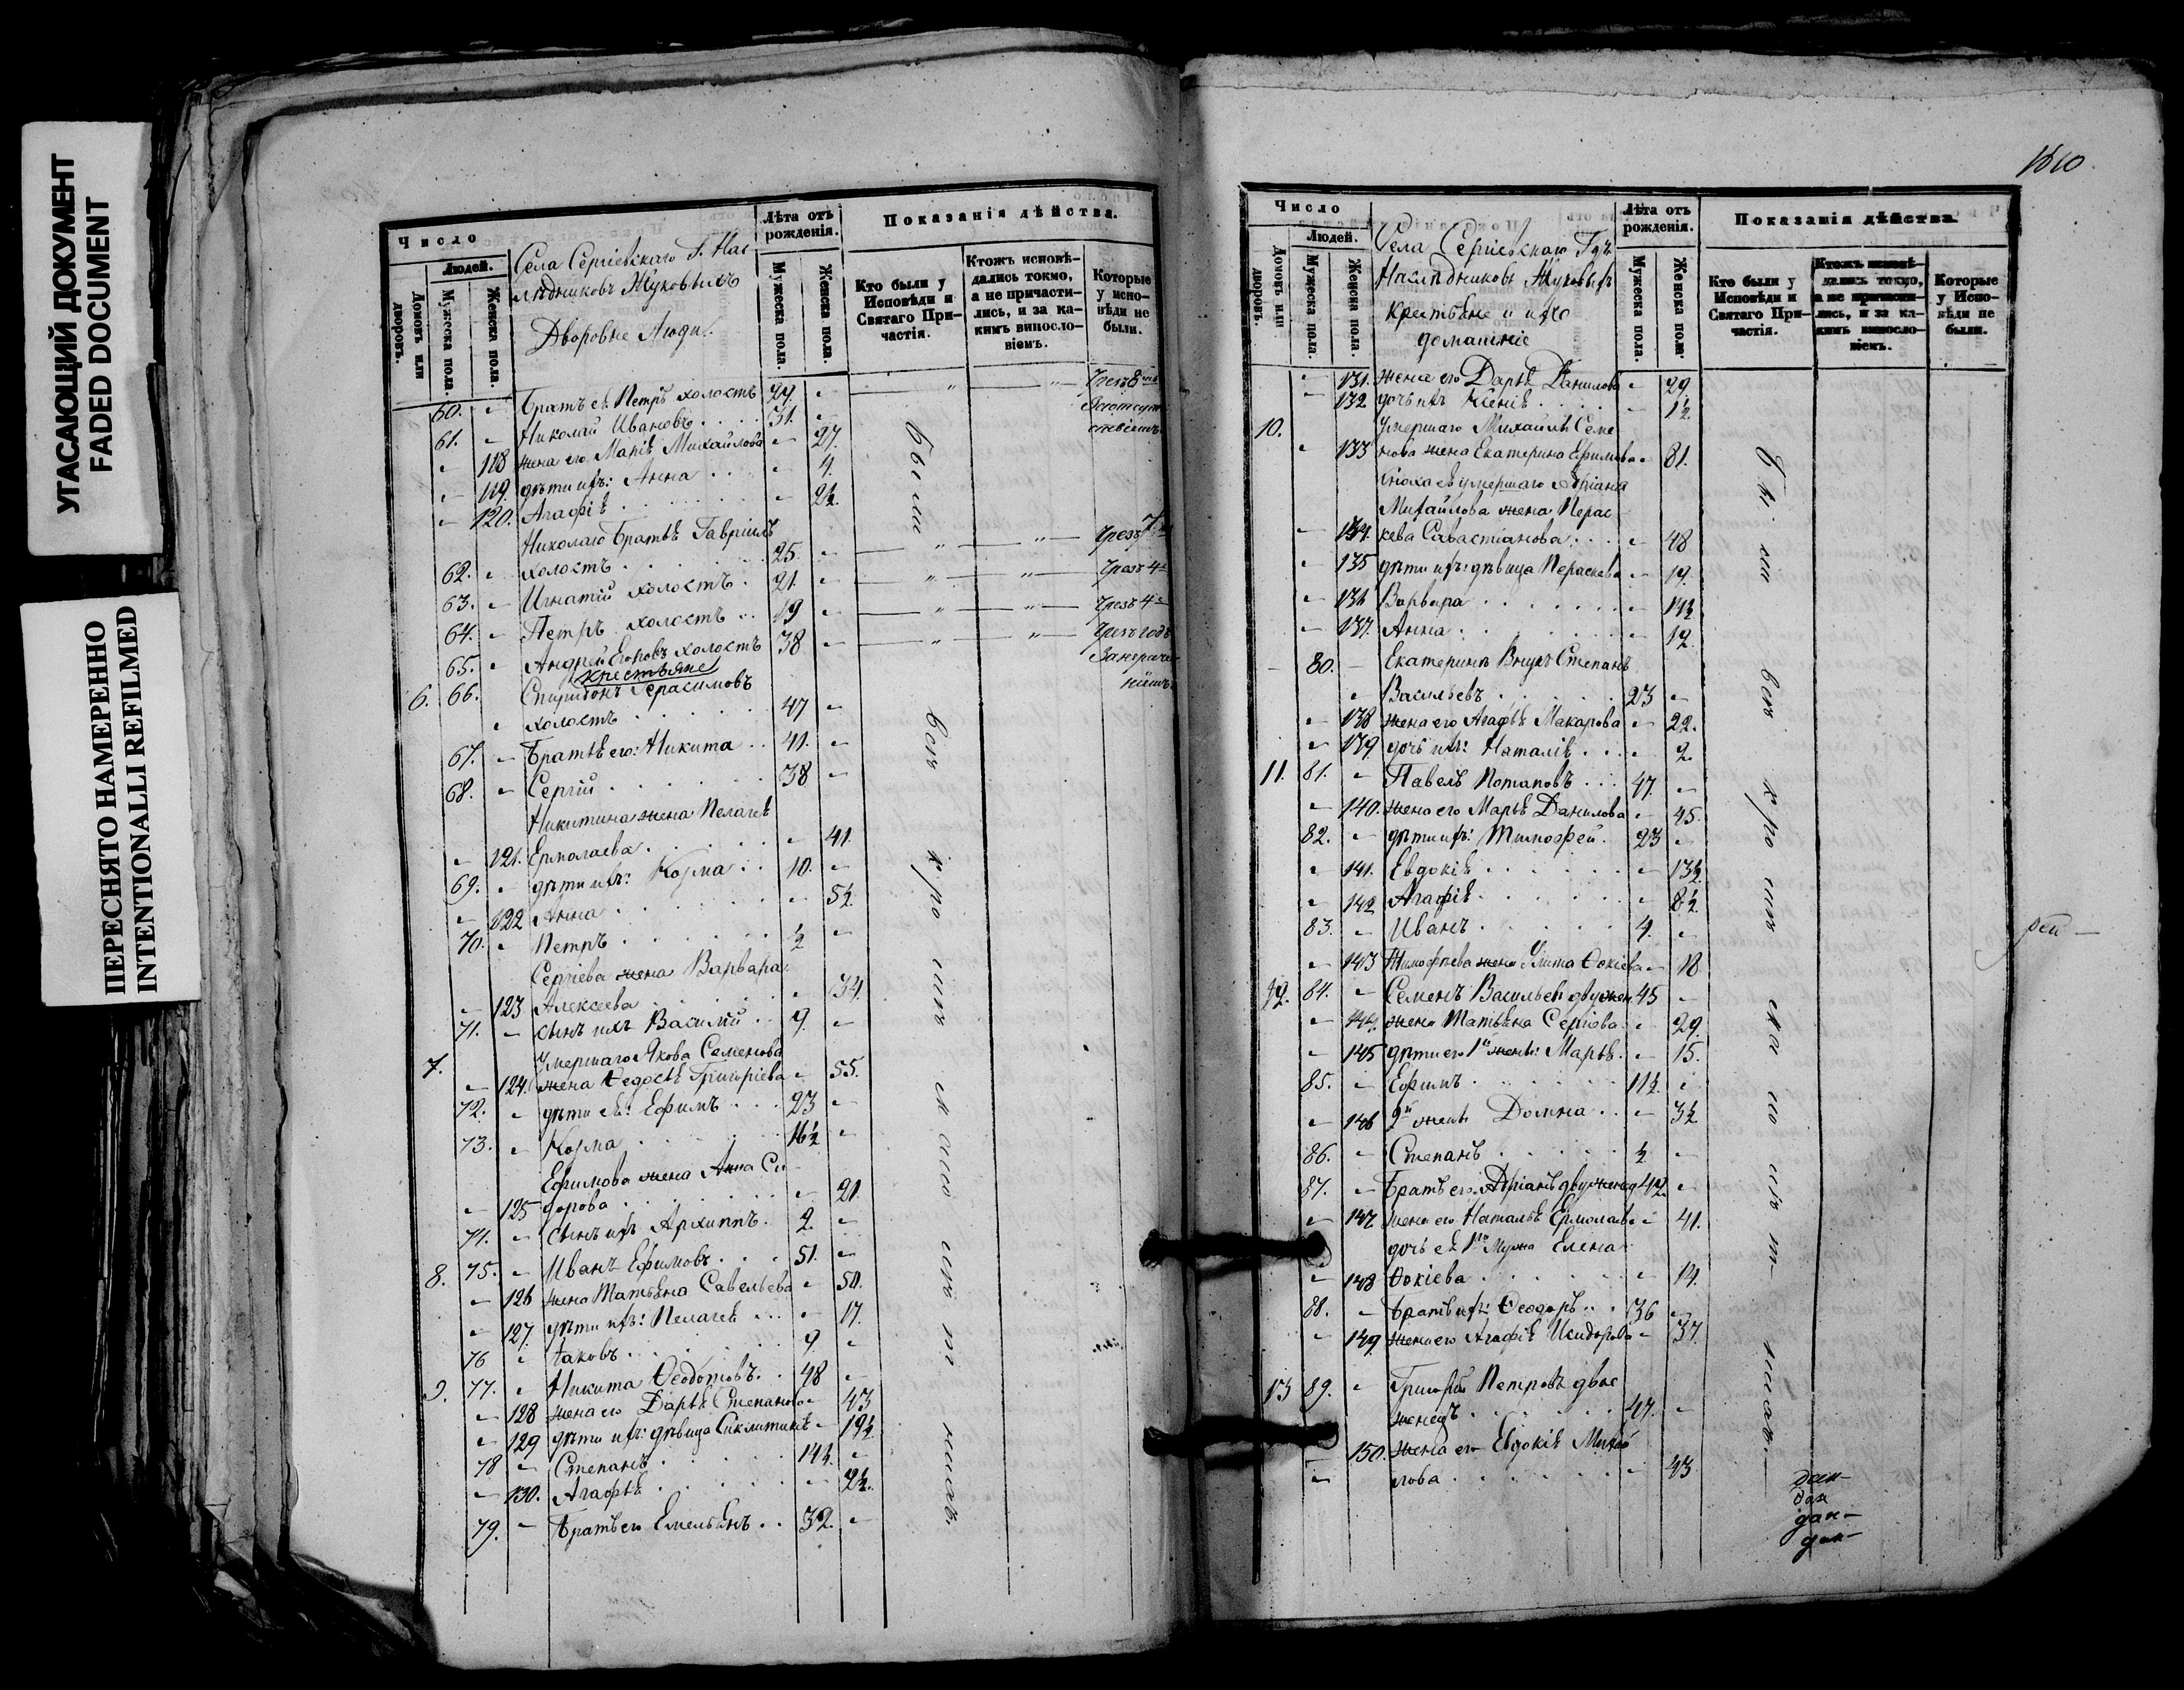 УГАСАЮЩИЙ ДОКУМЕНТ
FADED DOCUMENT
ПЕРЕСНЯТО НАМЕРЕННО
INTENTIONALLI REFILMED
Число
Людей.
Домовъ или дворовъ.
Мужеска пола.
Женска пола.
Села Сергіевскаго Г. Нас
лѣдниковъ Жуковыхъ
Дворовые Люди.
Лѣта отъ рожденія.
Мужеска пола.
Женска пола.
Показанія дѣйства.
Кто были у Исповѣди и Святаго Причастія.
Ктожъ исповѣдались токмо, а не причастились, и за какимъ винословіемъ.
Которые у исповѣди не были.
60. - Братъ ея Петръ холостъ 24. -
61. - Николай Ивановъ 31. -
- 118 жена его Марія Михайлова - 27.
- 119. дѣти ихъ: Анна - 4.
- 120. Агафія - 2½
Николаю Братья Гавріилъ
62. - холостъ 25. - Чрезъ 7
63. - Игнатій холостъ 21. - Чрезъ 4
64. - Петръ холостъ 19 - Чрезъ 4
65. - Андрей Егоровъ холостъ 38 - Чрезъ годъ
крестьяне
6. 66. Спиридонъ Герасимовъ
- холостъ 47 -
67. - Братья его: Никита 41. -
68. - Сергій 38 -
Никитина жена Пелагея
- 121. Ермолаева - 41.
69. - дѣти ихъ: Козма 10. -
- 122 Анна - 5½
70. - Петръ ½ -
Сергіева жена Варвара
- 123 Алексеева - 34.
71. - сынъ ихъ Василій 9. -
7. Умершаго Якова Семенова
- 124. жена Ѳедосья Григоріева - 55.
72. - дѣти ея: Ефимъ 23 -
73. - Козма 16½ -
Ефимова жена Анна Си
- 125 дорова - 21.
74. - сынъ ихъ Архиппъ 2. -
8. 75. - Иванъ Ефимовъ 51. -
- 126 жена Татьяна Савельева - 50.
- 127. дѣти ихъ: Пелагея - 17.
76 - Іаковъ 9 -
9. 77. - Никита Ѳеодотовъ 48 -
- 128 жена его Дарья Степанова - 43
- 129 дѣти ихъ: дѣвица Сиклитикія - 19½
78 - Степанъ 14½ -
- 130. Агафья - 2½
79. - Братъ его Емельянъ 32. -
Были вси крославн
Число
Людей.
Домовъ или дворовъ.
Мужеска пола.
Женска пола.
Села Сергіевскаго Гдъ
Наслѣдниковъ Жуковыхъ
Крестьяне и ихъ
домашніе
Лѣта отъ рожденія.
Мужеска пола.
Женска пола.
Показанія дѣйства.
Кто были у Исповѣди и Святаго Причастія.
Ктожъ исповѣдались токмо, а не причастились, и за какимъ винословіемъ.
Которые у Исповѣди не были.
- 131. жена его Дарья Данилова - 29.
- 132 дочь ихъ Ксенія - 1½
10. Умершаго Михаила Семе
- 133 нова жена Екатерина Ефимова - 81.
Сноха ея умершаго Адріана
Михайлова жена Парас
- 134. кева Савастіанова - 48
- 135 дѣти ихъ: дѣвица Параскева - 19.
- 136 Варвара - 14½
- 137. Анна - 12.
- 80. - Екатерины Внукъ Степанъ
- Васильевъ 23 -
- 138 жена его Агафья Макарова - 22.
- 139 дочь ихъ: Наталія - 2
11. 81. - Павелъ Потаповъ 47. -
- 140. жена его Марья Данилова - 45.
82. - дѣти ихъ: Тимофей 23 -
- 141. Евдокія - 13½
- 142 Агафія - 8½
83. - Иванъ 4. -
- 143 Тимофеева жена Улита Фокіева - 18
12. 84. - Семенъ Васильевъ двужен. 45 -
- 144. жена Татьяна Сергіева - 29.
- 145 дѣти его 1й жены: Марья - 15.
85. - Ефимъ 11½ -
- 146 2й жены Домна - 3½
86. - Степанъ ½ -
87. - Братъ его Адріанъ двужене 42 -
- 147 жена его Наталья Ермолаева - 41.
дочь ея 1го мужа Елена
- 148 Фокіева - 14.
88. - братъ ихъ: Ѳеодоръ 36 -
- 149. жена его Агафія Исидорова - 37.
13 89. - Григорій Петровъ двое
женецъ 47. -
150. жена его Евдокія Михай
- лова - 43